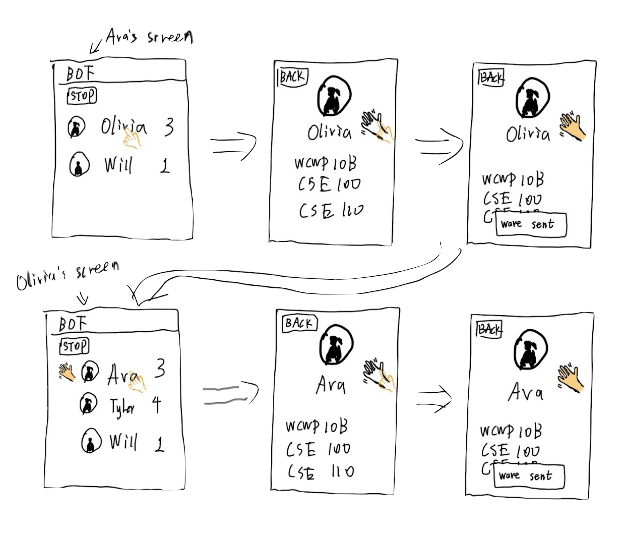 Ava's screen
BOF
STOP
Olivia 3
Will 1
BACK
Olivia
WCWP 10B
CSE 100
CSE 110
BACK
Olivia
WCWP 10B
CSE 100
wave sent
Olivia's screen
BOF
STOP
Ava 3
Tyler 4
Will 1
BACK
Ava
WCWP 10B
CSE 100
CSE 110
BACK
Ava
WCWP 10B
CSE 100
wave sent